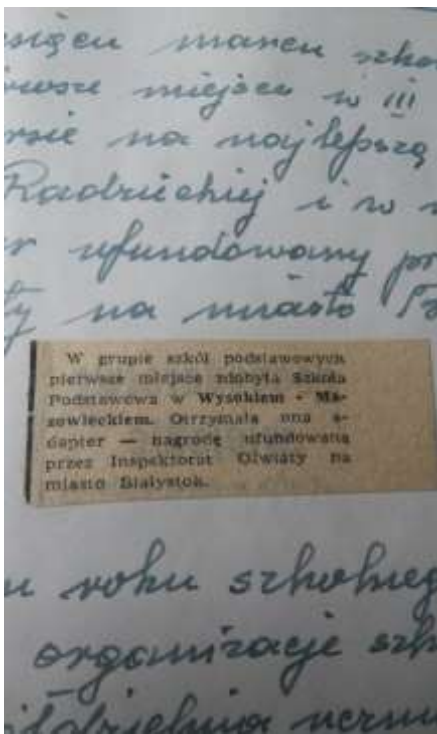 miesiącu marcu szko
miejsce w III
na najlepszą
Radzieckiej i w
ufundowany pr
ty na miasto
W grupie szkół podstawowych
pierwsze miejsce zdobyła Szkoła
Podstawowa w Wysokiem - Ma-
zowieckiem. Otrzymała ona a-
dapter — nagrodę ufundowaną
przez Inspektorat Oświaty na
miasto Białystok.
u roku szkolneg
organizacje szk